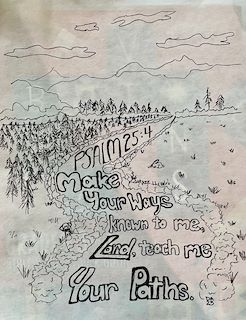 PSAlM 25:4
Make
Your Ways
known to me,
Lord, teach me
Your Paths.